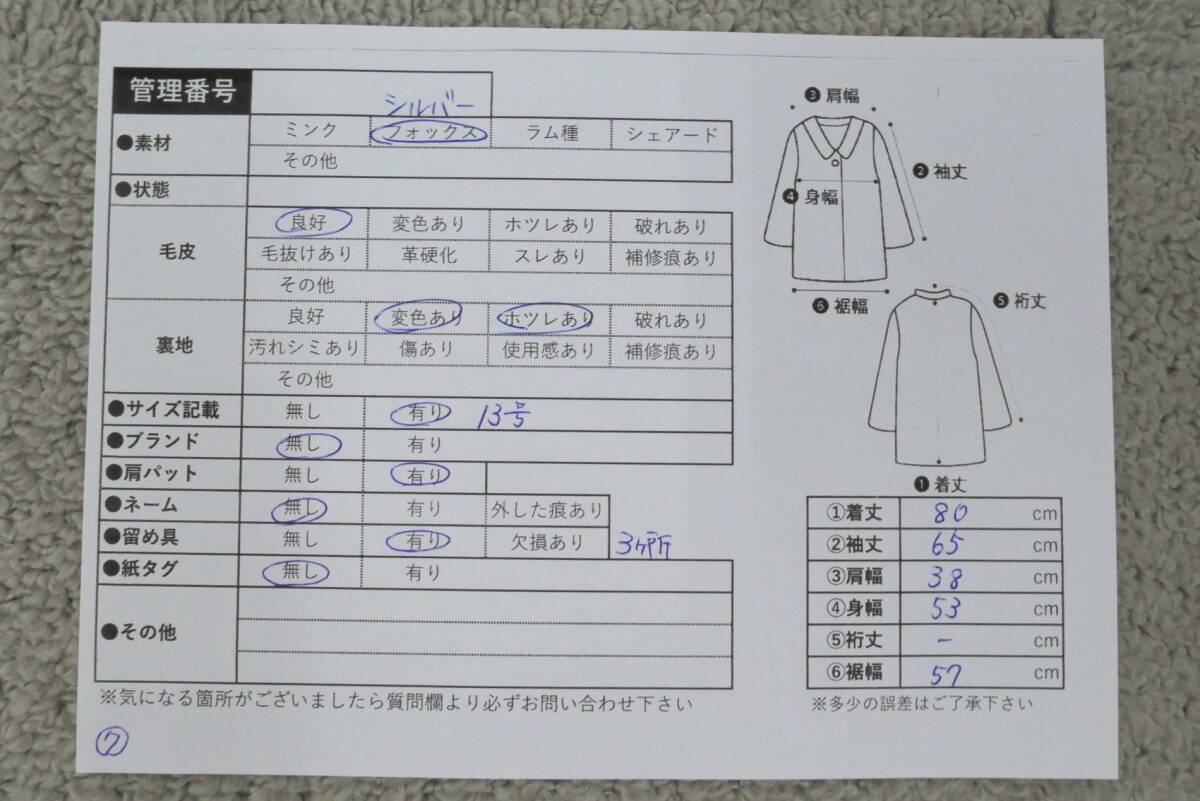 管理番号
シルバー
●素材 ミンク フォックス ラム種 シェアード
その他
●状態
毛皮 良好 変色あり ホツレあり 破れあり
毛抜けあり 革硬化 スレあり 補修痕あり
その他
裏地 良好 変色あり ホツレあり 破れあり
汚れシミあり 傷あり 使用感あり 補修痕あり
その他
●サイズ記載 無し 有り 13号
●ブランド 無し 有り
●肩パット 無し 有り
●ネーム 無し 有り 外した痕あり
●留め具 無し 有り 欠損あり 3ヶ所
●紙タグ 無し 有り
●その他
※気になる箇所がございましたら質問欄より必ずお問い合わせ下さい
⑦
❸肩幅
❷袖丈
❹身幅
❻裾幅
❺裄丈
❶着丈
①着丈 80 cm
②袖丈 65 cm
③肩幅 38 cm
④身幅 53 cm
⑤裄丈 - cm
⑥裾幅 57 cm
※多少の誤差はご了承下さい